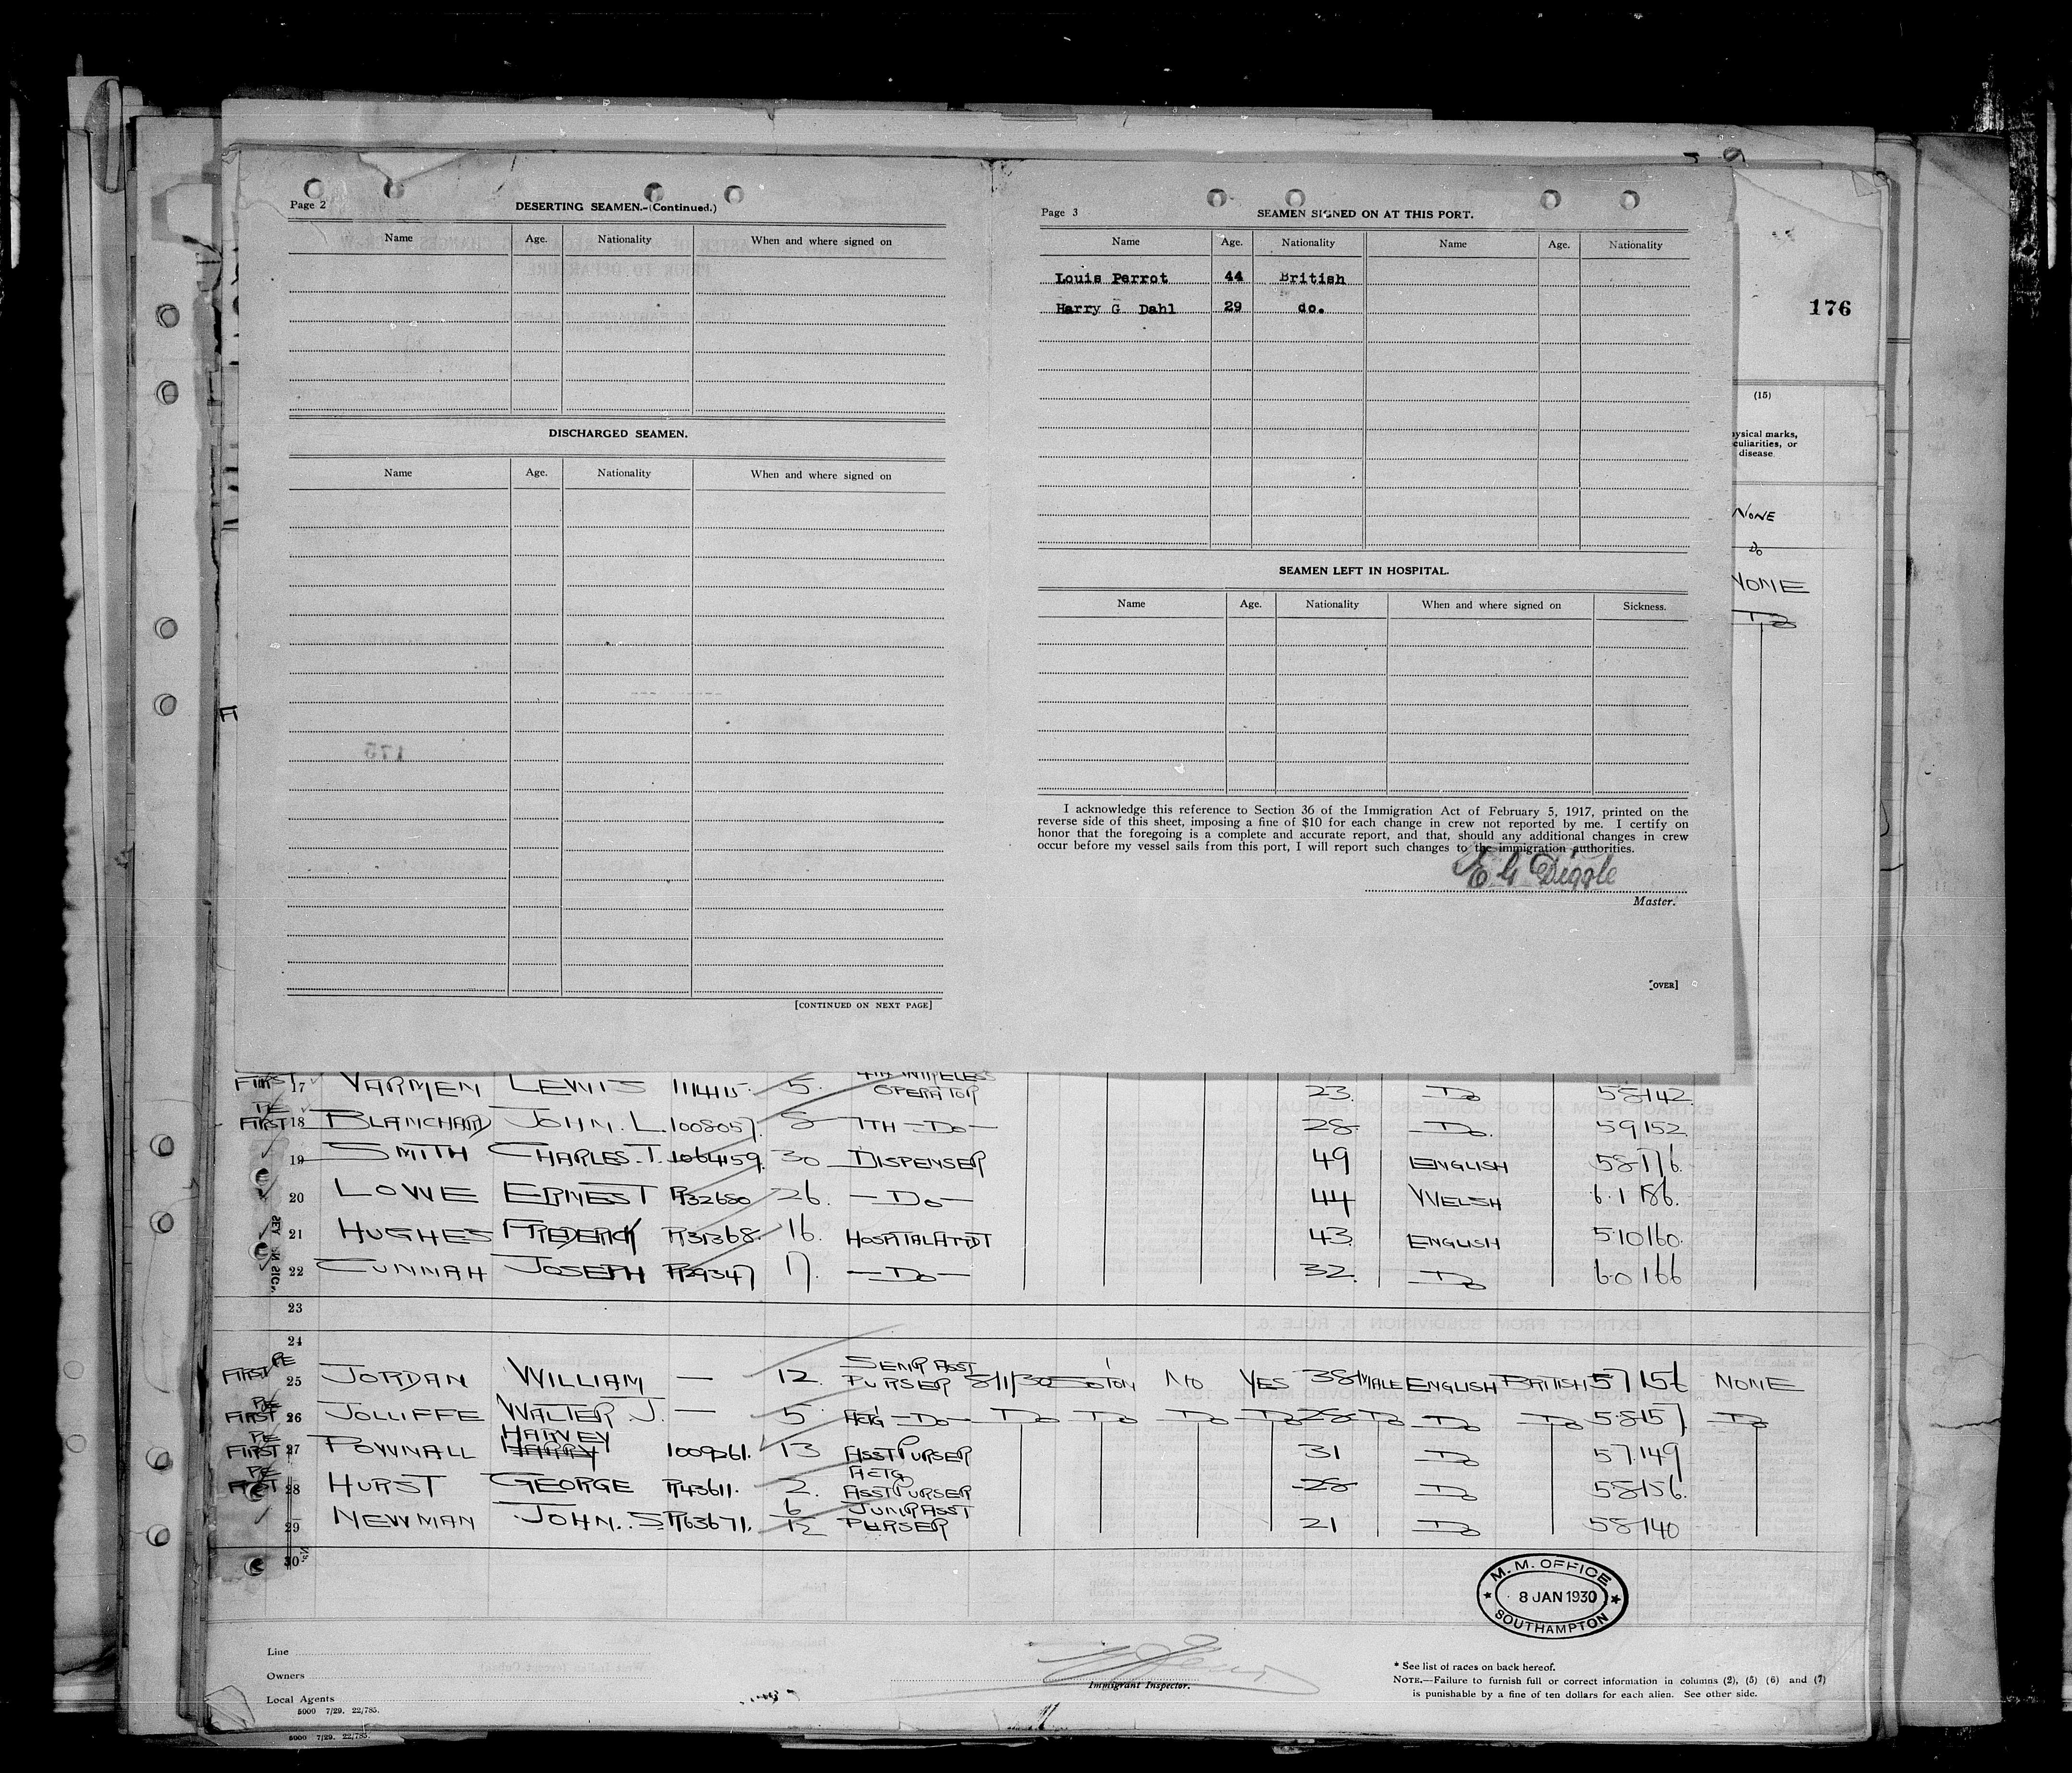 Page 2
DESERTING SEAMEN.-(Continued.)
Name Age. Nationality When and where signed on
DISCHARGED SEAMEN.
Name Age. Nationality When and where signed on
[CONTINUED ON NEXT PAGE]
Page 3
SEAMEN SIGNED ON AT THIS PORT.
Name Age. Nationality Name Age. Nationality
Louis Perrot 44 British
Harry G Dahl 29 do.
SEAMEN LEFT IN HOSPITAL.
Name Age. Nationality When and where signed on Sickness.
I acknowledge this reference to Section 36 of the Immigration Act of February 5, 1917, printed on the
reverse side of this sheet, imposing a fine of $10 for each change in crew not reported by me. I certify on
honor that the foregoing is a complete and accurate report, and that, should any additional changes in crew
occur before my vessel sails from this port, I will report such changes to the immigration authorities.
E G Diggle
Master.
[OVER]
176
(15)
ysical marks,
culiarities, or
disease.
NONE
Do
NONE
Do
FIRST 17 VARMEN LEWIS 5 OPERATOR 23 Do 58 142
PE
FIRST 18 BLANCHARD JOHN. L. 1008057. 8 7TH -Do- 28 Do. 59 152
19 SMITH CHARLES. T. 1064159. 30 DISPENSER 49 ENGLISH 58 176.
20 LOWE ERNEST R32680 26. -Do- 44 WELSH 6.1 186.
21 HUGHES FREDERICK R31368. 16. HOSPITAL ATTDT 43. ENGLISH 5.10 160.
22 CUNNAH JOSEPH R29347 17. -Do- 32. Do 6.0 166
23
24
FIRST PE 25 JORDAN WILLIAM — 12. SENR ASST PURSER 8/1/30 SOTON NO YES 38 MALE ENGLISH BRITISH 57 156 NONE
PE
FIRST 26 JOLLIFFE WALTER. J. — 5 ACTG -Do- Do Do Do Do 28 Do Do Do 58 157 Do
PE
FIRST 27 POWNALL HARVEY HARRY 1009261. 13 ASST PURSER 31 Do 57 149
PE
FIRST 28 HURST GEORGE R43611. 2. ACTG ASST PURSER 28 Do 58 156.
29 NEWMAN JOHN. S. R63671. 6/12 JUNR ASST PURSER 21 Do 58 140
30
M. M. OFFICE
8 JAN 1930
SOUTHAMPTON
Line
Owners
Local Agents
5000 7/29. 22/785.
5000 7/29. 22/785.
Immigrant Inspector.
* See list of races on back hereof.
NOTE.—Failure to furnish full or correct information in columns (2), (5) (6) and (7)
is punishable by a fine of ten dollars for each alien. See other side.